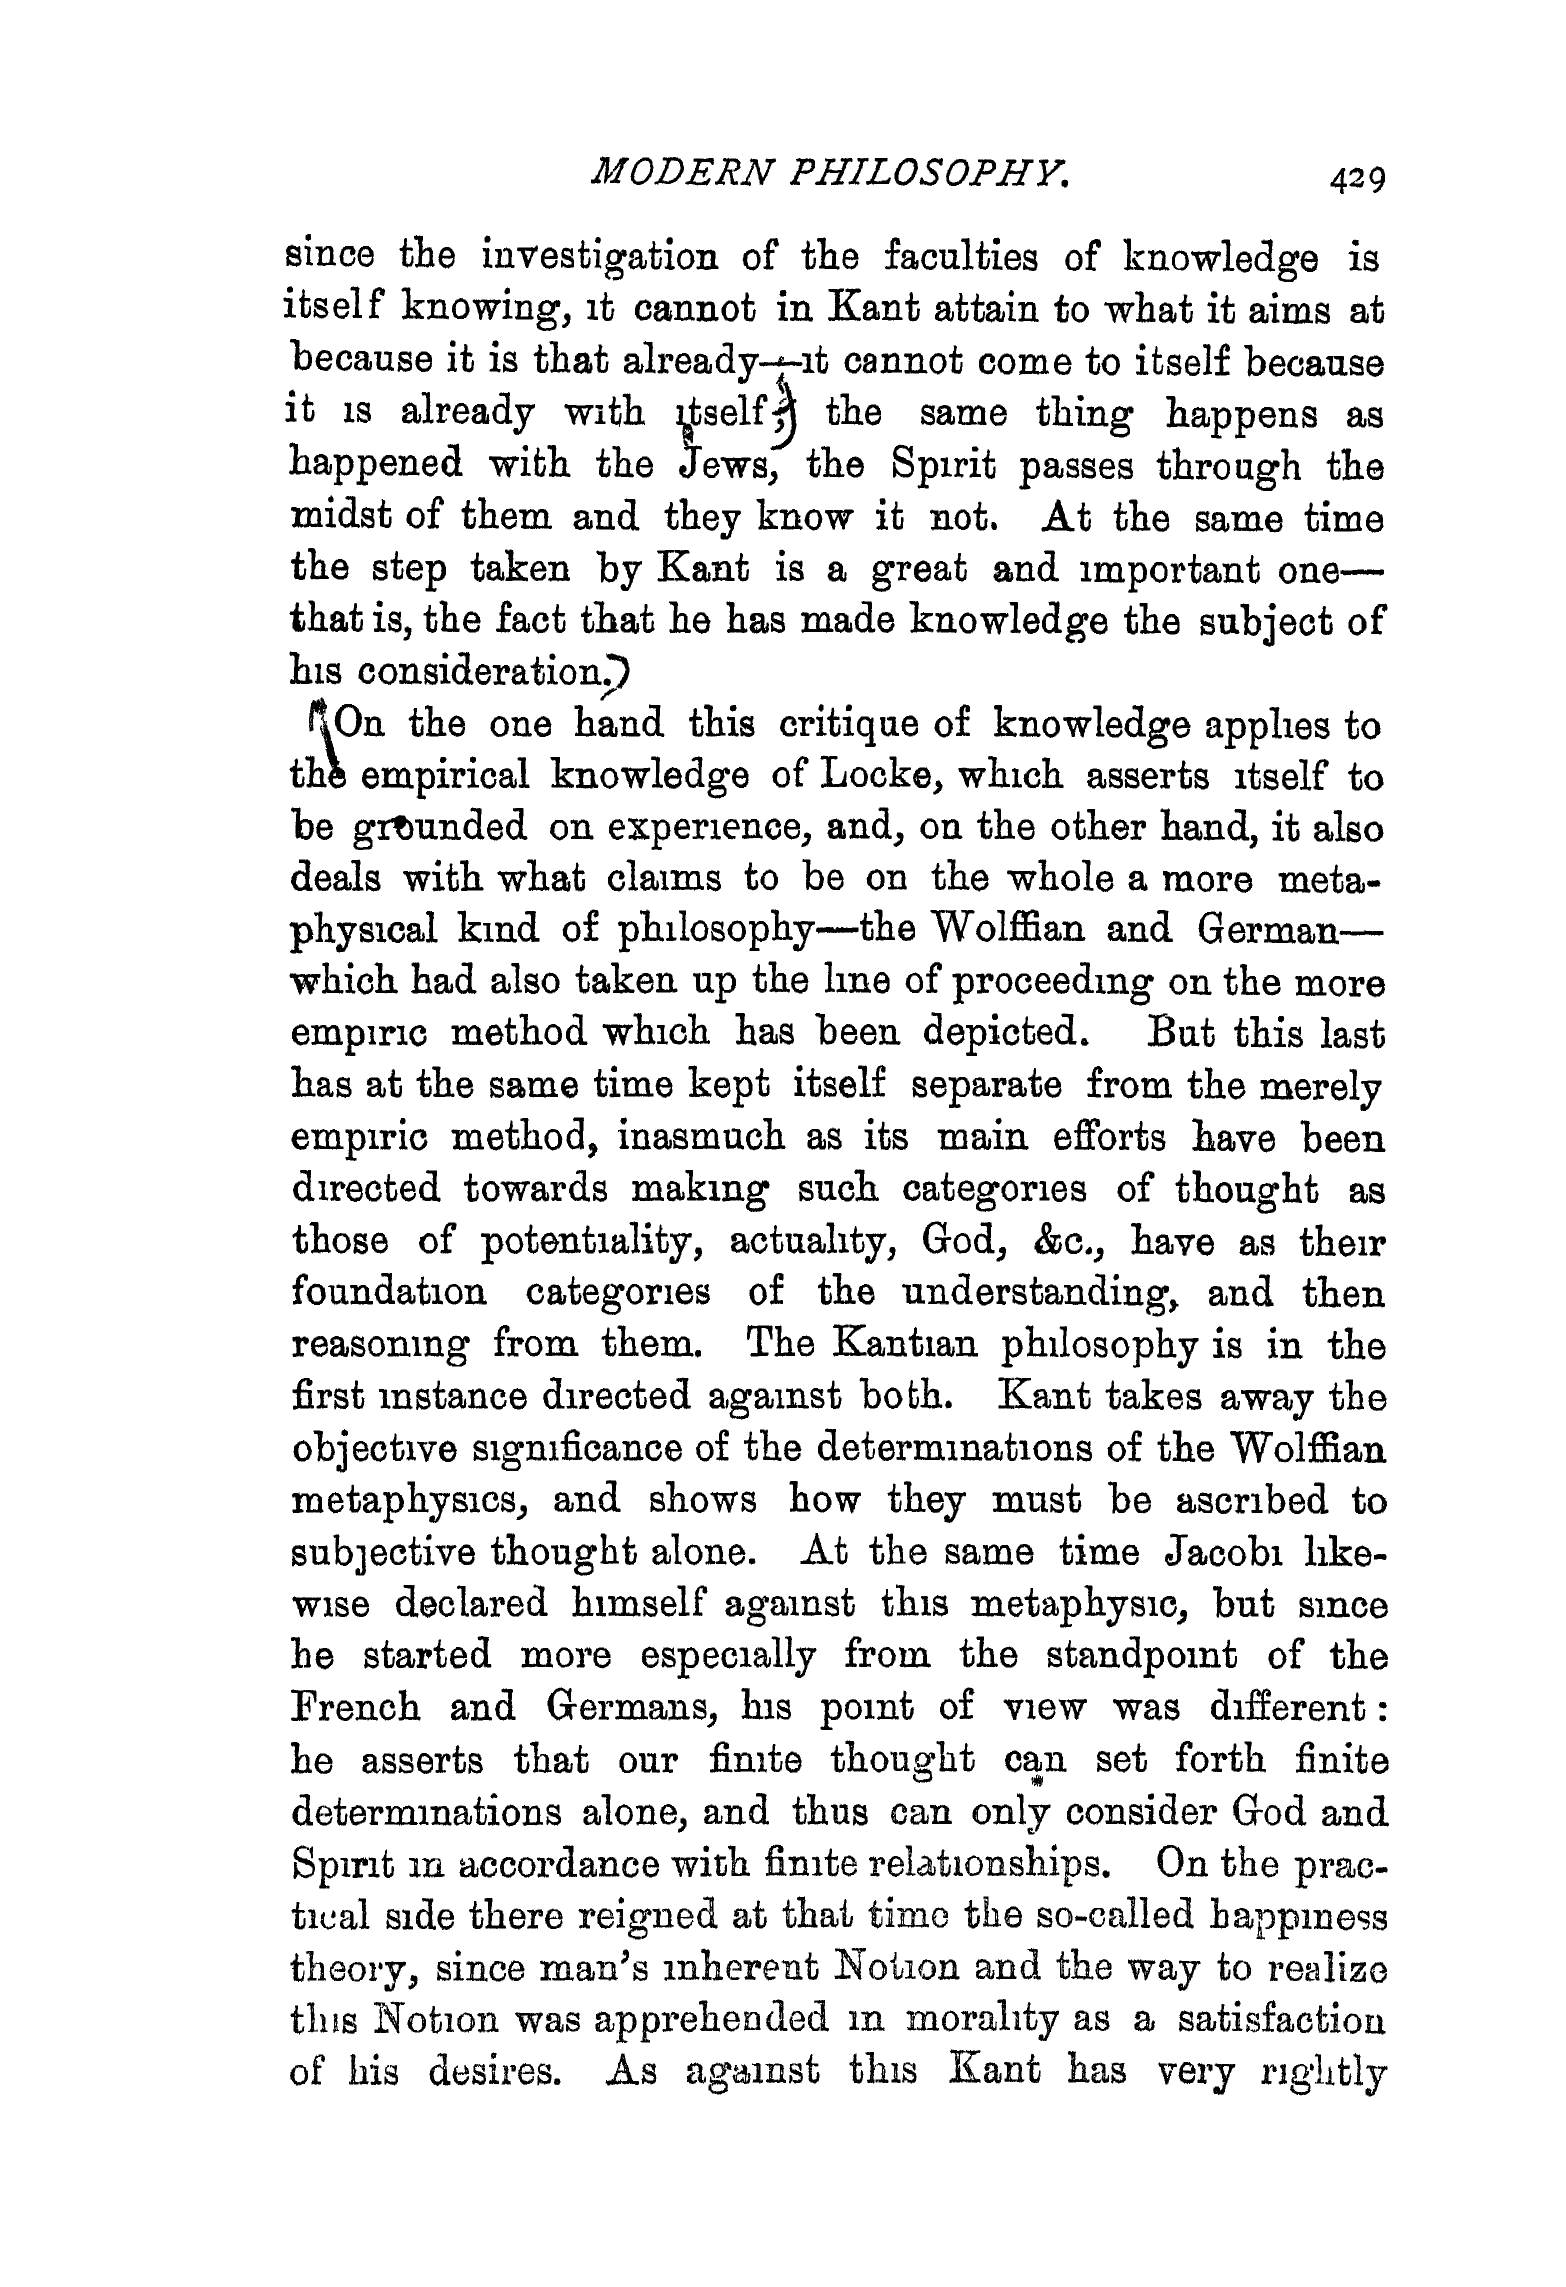 MODERN PHILOSOPHY. 429
since the investigation of the faculties of knowledge is
itself knowing, it cannot in Kant attain to what it aims at
because it is that already—it cannot come to itself because
it is already with itself; the same thing happens as
happened with the Jews, the Spirit passes through the
midst of them and they know it not. At the same time
the step taken by Kant is a great and important one—
that is, the fact that he has made knowledge the subject of
his consideration.
On the one hand this critique of knowledge applies to
the empirical knowledge of Locke, which asserts itself to
be grounded on experience, and, on the other hand, it also
deals with what claims to be on the whole a more meta-
physical kind of philosophy—the Wolffian and German—
which had also taken up the line of proceeding on the more
empiric method which has been depicted. But this last
has at the same time kept itself separate from the merely
empiric method, inasmuch as its main efforts have been
directed towards making such categories of thought as
those of potentiality, actuality, God, &c., have as their
foundation categories of the understanding, and then
reasoning from them. The Kantian philosophy is in the
first instance directed against both. Kant takes away the
objective significance of the determinations of the Wolffian
metaphysics, and shows how they must be ascribed to
subjective thought alone. At the same time Jacobi like-
wise declared himself against this metaphysic, but since
he started more especially from the standpoint of the
French and Germans, his point of view was different:
he asserts that our finite thought can set forth finite
determinations alone, and thus can only consider God and
Spirit in accordance with finite relationships. On the prac-
tical side there reigned at that time the so-called happiness
theory, since man's inherent Notion and the way to realize
this Notion was apprehended in morality as a satisfaction
of his desires. As against this Kant has very rightly